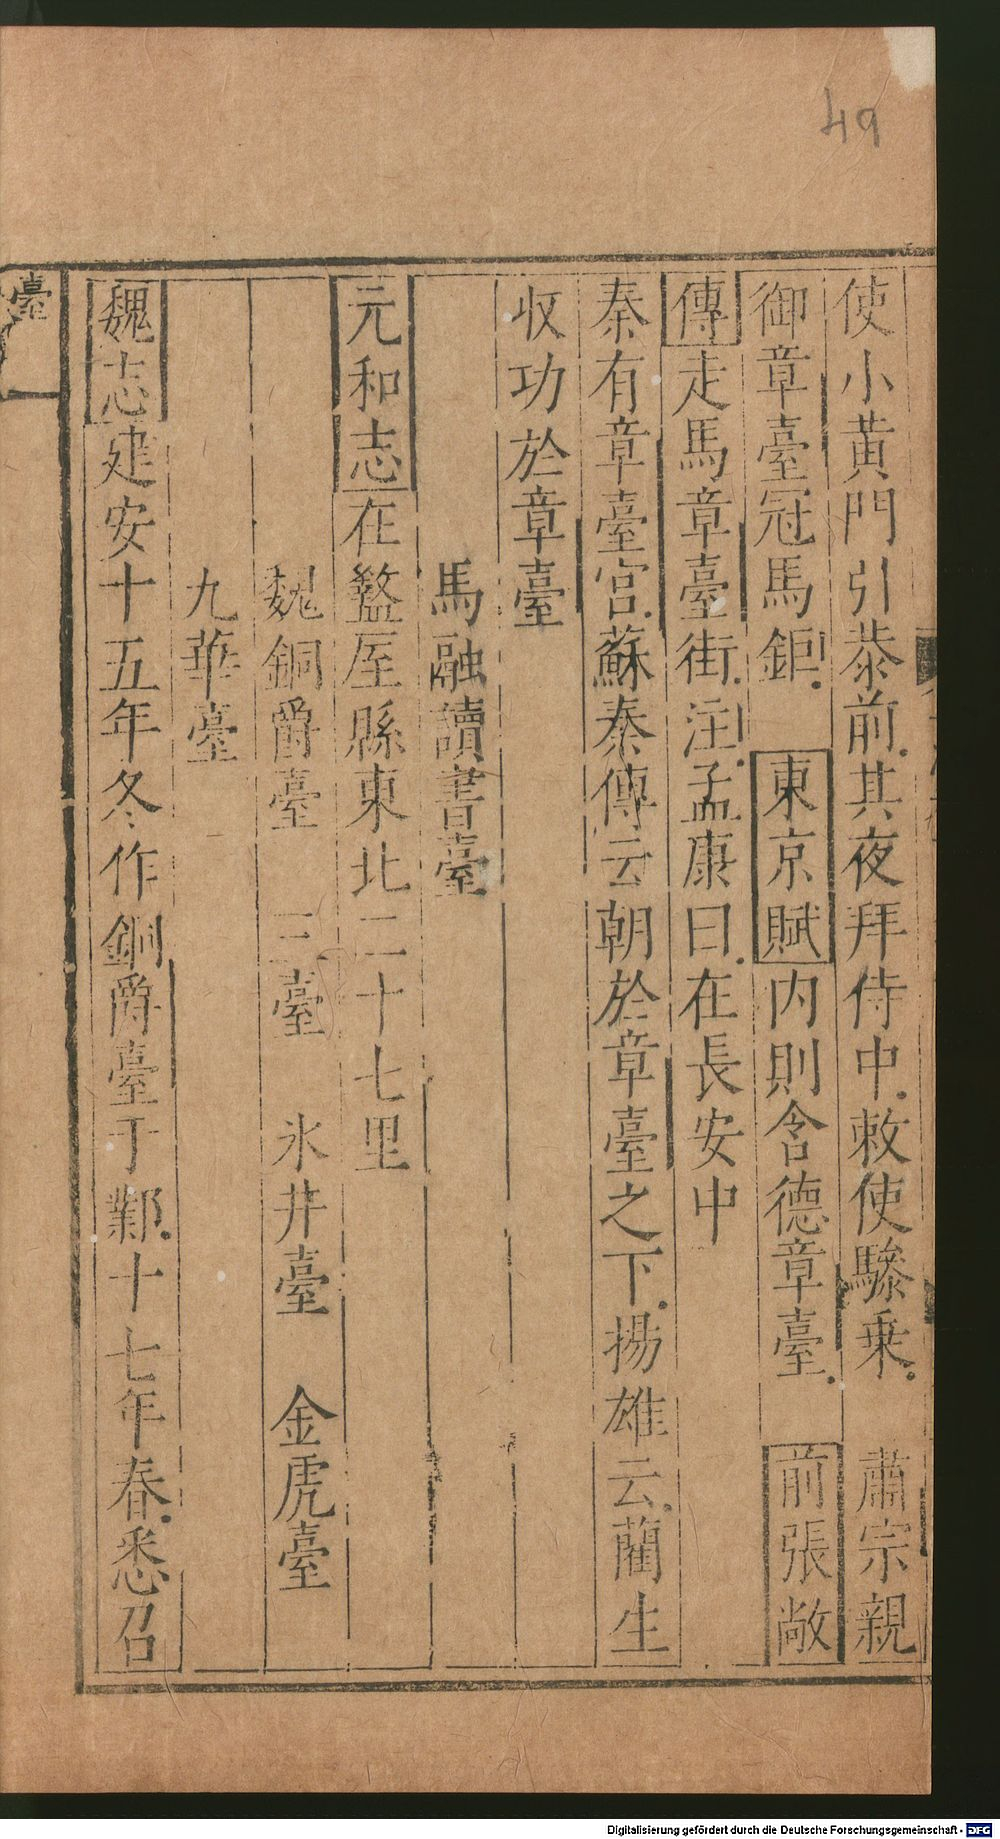 49
使小黄門引恭前其夜拜侍中敕使驂乗　肅宗親
御章臺冠馬鉅　東京賦内則含德章臺　前張敞
傳走馬章臺街注孟康曰在長安中
秦有章臺宮蘇秦傳云朝於章臺之下揚雄云藺生
収功於章臺
馬融讀書臺
元和志在盩厔縣東北二十七里
魏銅爵臺　三臺　氷井臺　金虎臺
九華臺
魏志建安十五年冬作銅爵臺于鄴十七年春悉召
臺
Digitalisierung gefördert durch die Deutsche Forschungsgemeinschaft - DFG